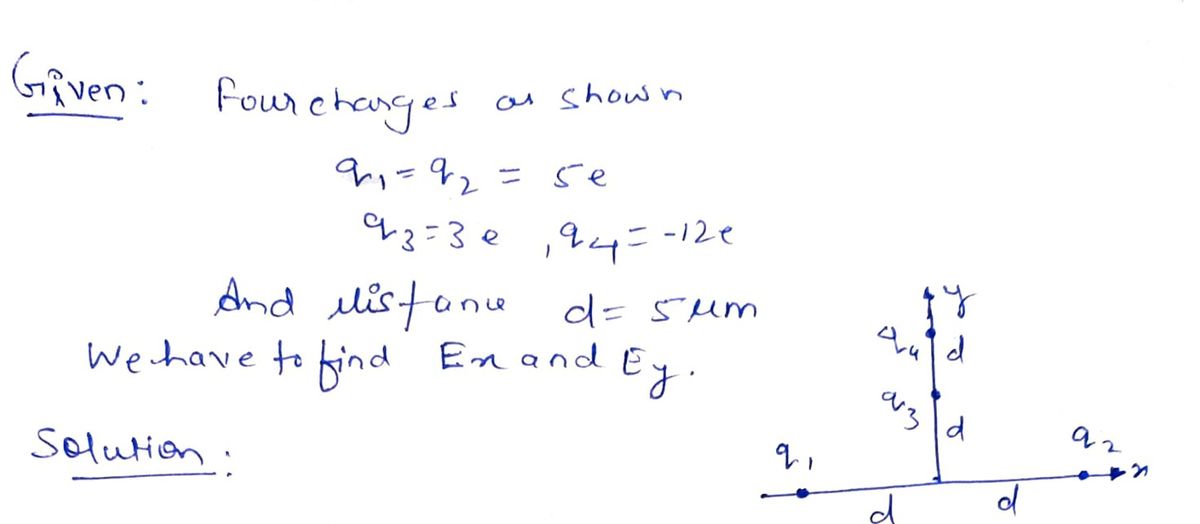 Given: Four charges as shown
q₁ = q₂ = 5e
q₃ = 3e , q₄ = -12e
And distance d = 5 μm
We have to find Ex and Ey.
Solution:
y
q₄ d
q₃ d
q₁ q₂ x
d d